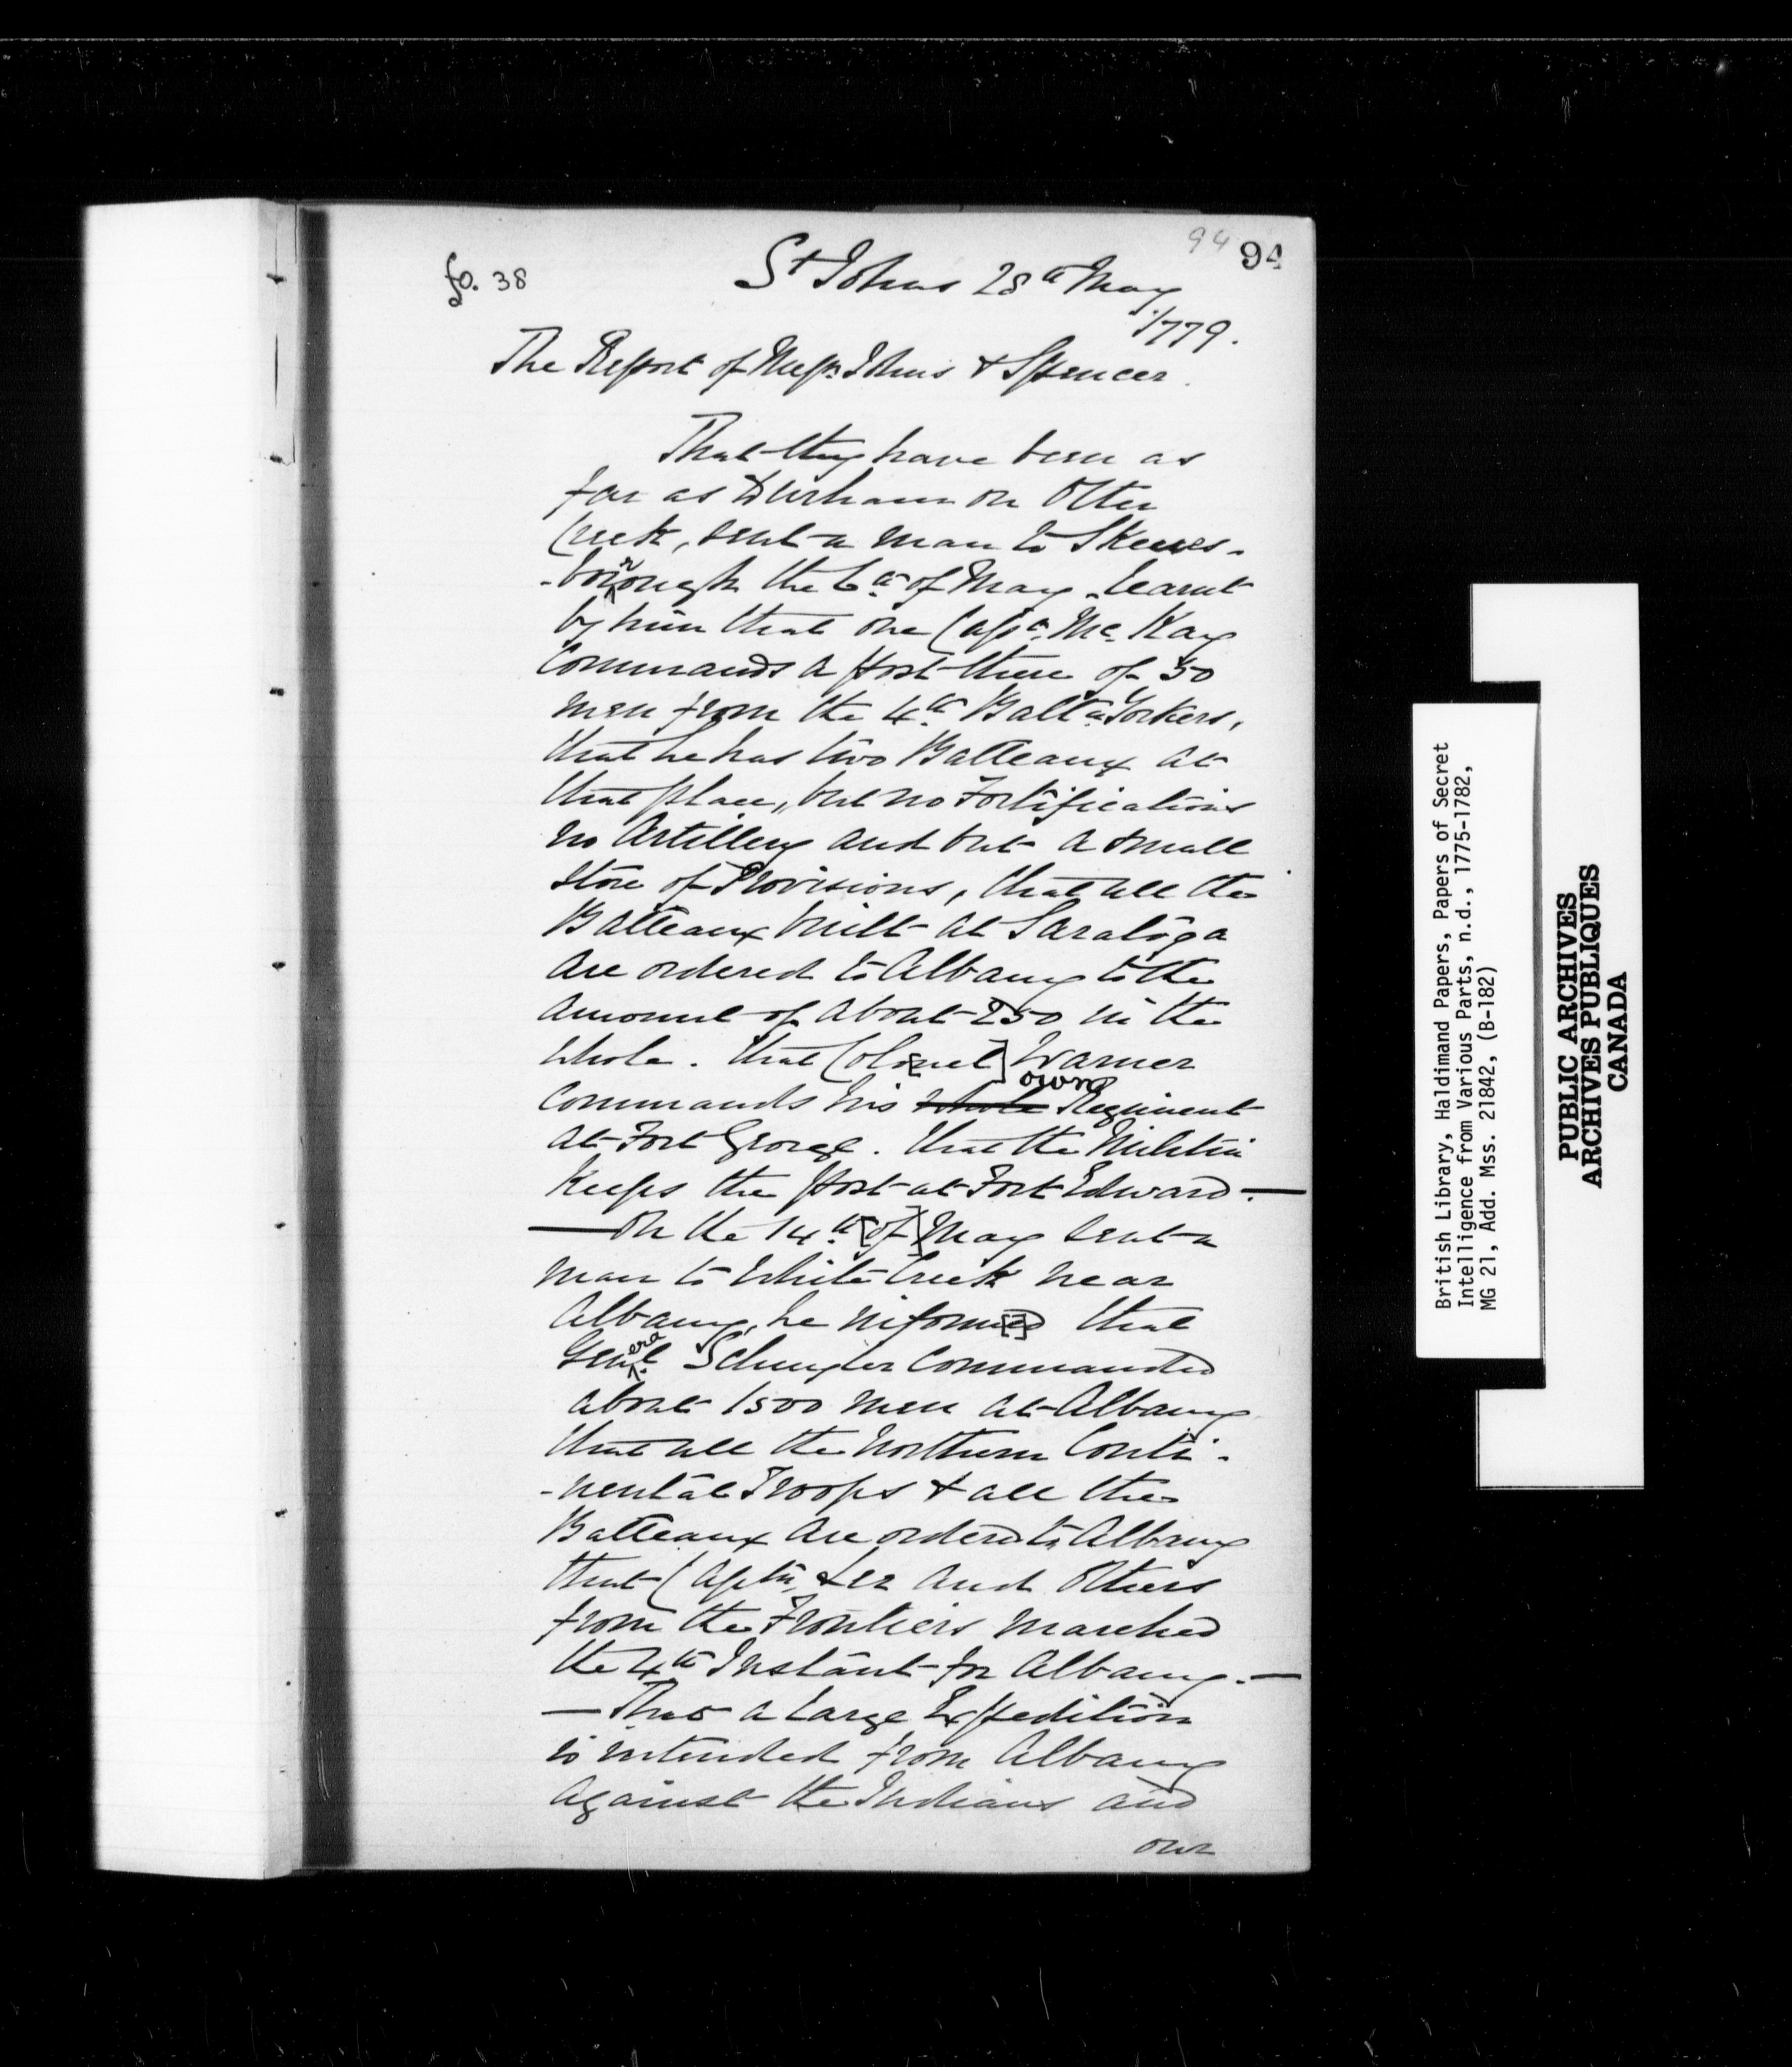 94 94
fo. 38
St Johns 28th May
1779.
The Report of Messrs Johns & Spencer.
That they have been as
far as Durham on Otter
Creek, sent a man to Skeenes-
-borrough the 6th of May, learnt
by him that one Capt. Mc. Kay
Commands a post there of 50
men from the 4th Baltn Yorkers,
that he has two Batteaux at
that place, but no Fortifications
no Artillery and but a small
store of Provisions, that all the
Batteaux built at Saratoga
are ordered to Albany to the
amount of about 250 in the
whole. that Colonel] Warner
Commands his whole own Regiment
at Fort George. that the Militia
Keeps the post at Fort Edward.—
— On the 14th [of] May sent a
man to White Creek near
Albany, he inform[e]d that
General Schuyler Commanded
about 1500 men at Albany
that all the Northern Conti-
-nental Troops & all the
Batteaux are ordered to Albany
that Captn. Lee and others
from the Frontiers marched
the 4th Instant for Albany.—
— That a large Expedition
is intended from Albany
against the Indians and
our
British Library, Haldimand Papers, Papers of Secret
Intelligence from Various Parts, n.d., 1775-1782,
MG 21, Add. Mss. 21842, (B-182)
PUBLIC ARCHIVES
ARCHIVES PUBLIQUES
CANADA